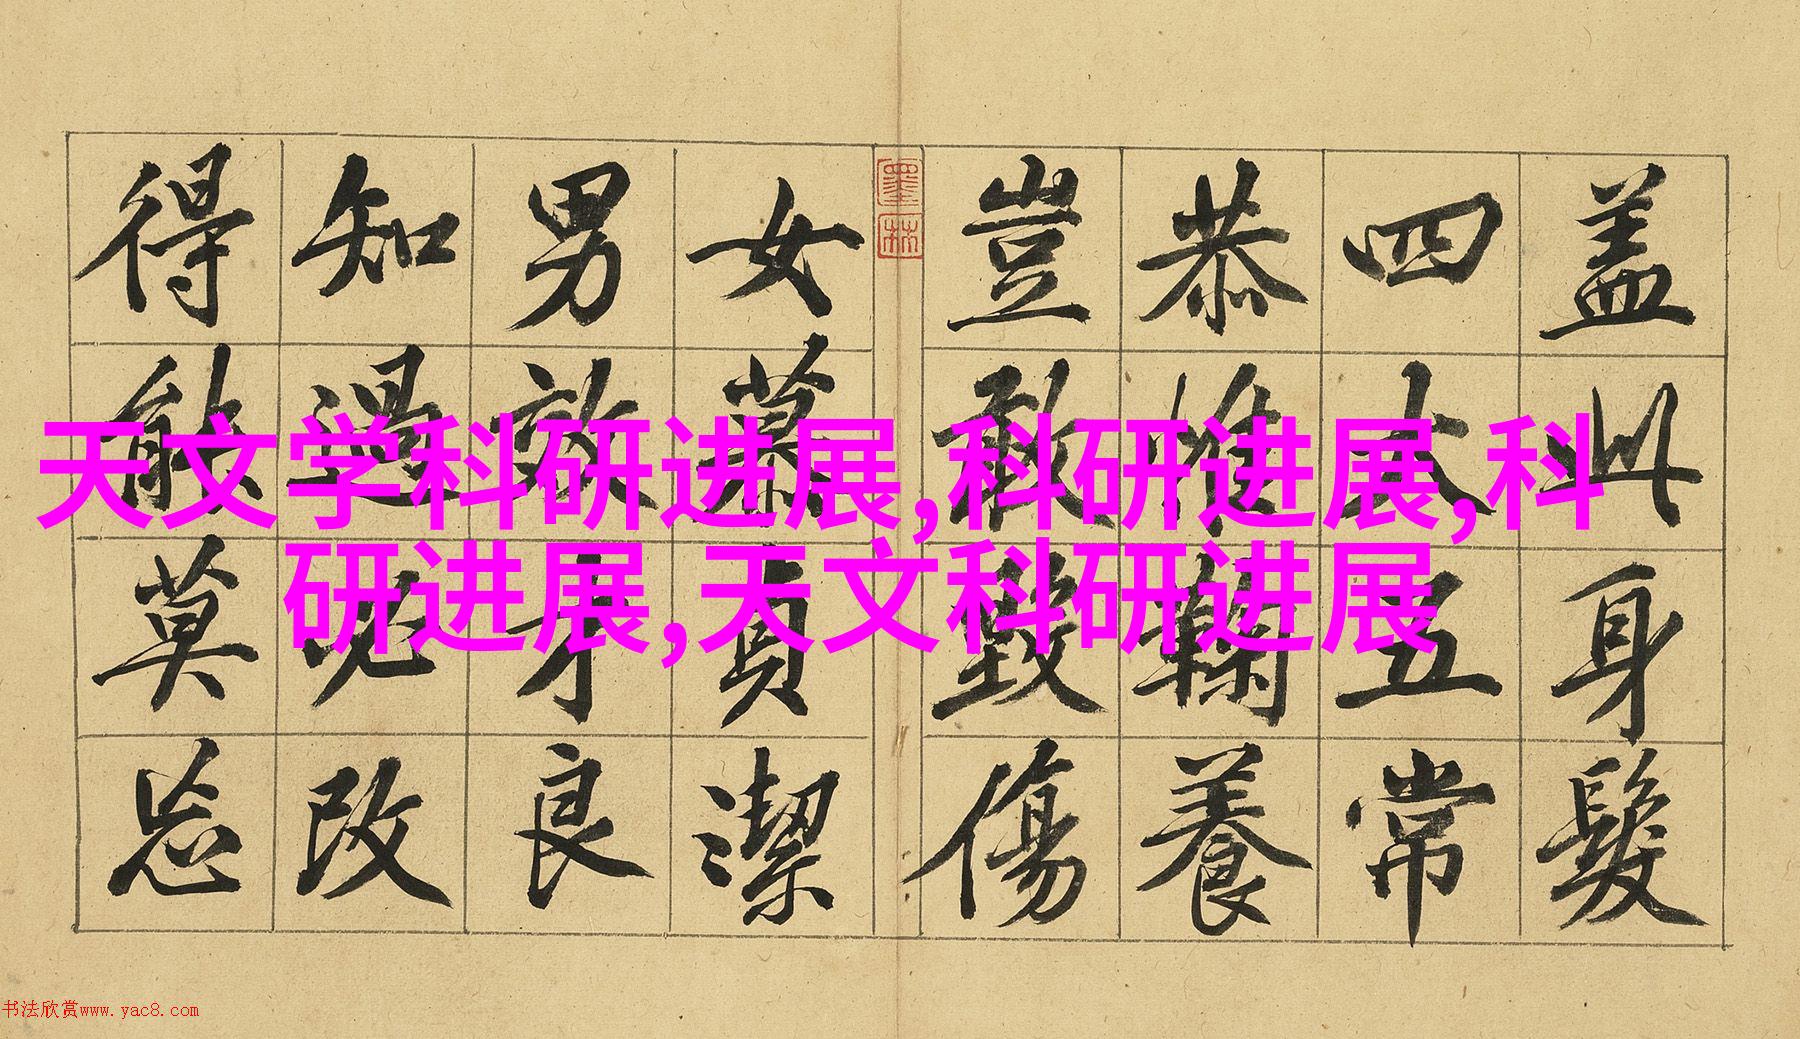 盖此身髮
四大五常
恭惟鞠養
豈敢毀傷
墨林
女慕貞潔
男效才良
知過必改
得能莫忘
天文学科研进展,科研进展,科
研进展,天文科研进展
书法欣赏www.yac8.com